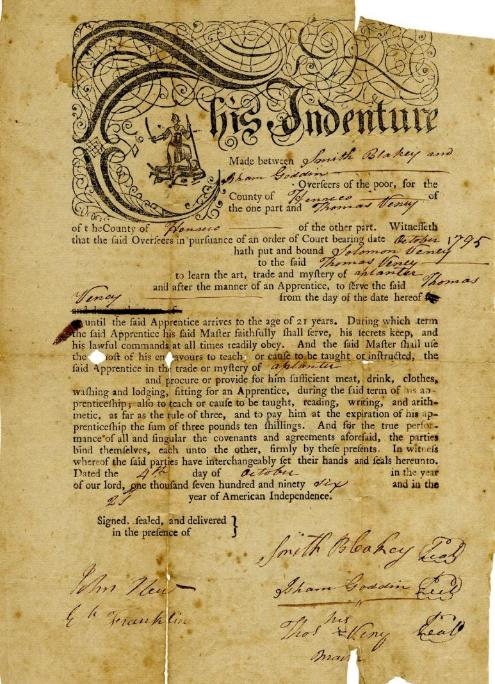 This Indenture
Made between Smith Blakey and
Isham Goddin Overseers of the poor, for the
County of Henrico of
the one part and Thomas Veney
of the County of Henrico of the other part. Witnesseth
that the said Overseers in pursuance of an order of Court bearing date October 1795
hath put and bound Solomon Veney
to the said Thomas Veney
to learn the art, trade and mystery of a planter
and after the manner of an Apprentice, to serve the said Thomas
Veney from the day of the date hereof
until the said Apprentice arrives to the age of 21 years. During which term
the said Apprentice his said Master faithfully shall serve, his secrets keep, and
his lawful commands at all times readily obey. And the said Master shall use
the most of his endeavours to teach, or cause to be taught or instructed, the
said Apprentice in the trade or mystery of a planter
and procure or provide for him sufficient meat, drink, clothes,
washing and lodging, fitting for an Apprentice, during the said term of his ap-
prenticeship, also to teach or cause to be taught, reading, writing, and arith-
metic, as far as the rule of three, and to pay him at the expiration of his ap-
prenticeship the sum of three pounds ten shillings. And for the true perfor-
mance of all and singular the covenants and agreements aforesaid, the parties
bind themselves, each unto the other, firmly by these presents. In witness
whereof the said parties have interchangeably set their hands and seals hereunto.
Dated the day of October in the year
of our lord, one thousand seven hundred and ninety six and in the
year of American Independence.
Signed, sealed, and delivered
in the presence of
Smith Blakey Seal
Isham Goddin Seal
John
Franklin
his
Thos Veny Seal
mark